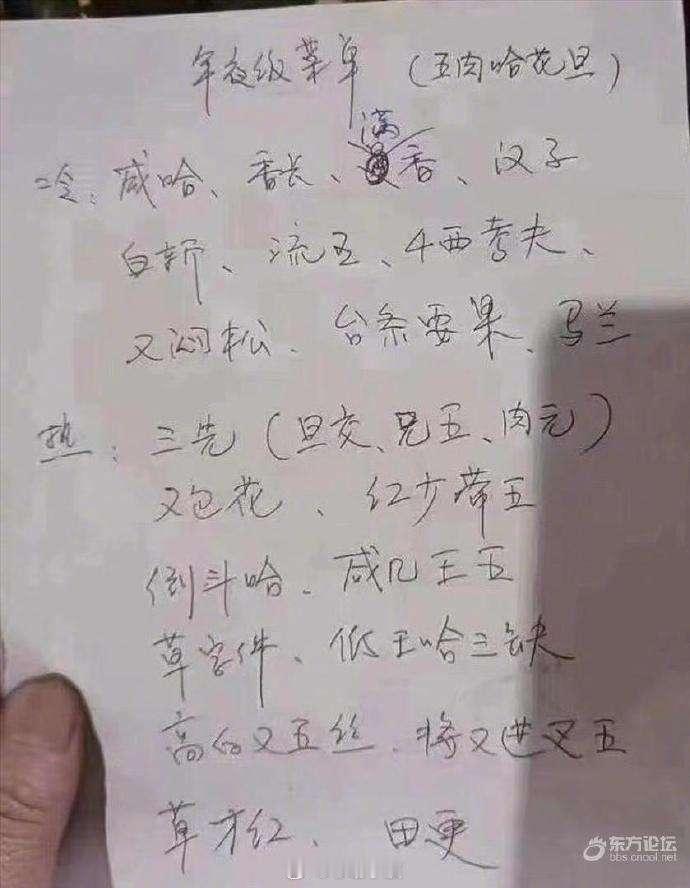 年夜级菜单 (五肉哈花旦)
冷: 咸哈、香长、满香、汉子
白斩、流五、4西考夫、
又闷松、台条要果、马兰
热: 三先 (旦交、兄五、肉元)
又包花、红少带五
倒斗哈、咸几王五
草字件、低王哈三缺
高的又五丝、将又进又五
草才红、田更
东方论坛
bbs.cnool.net